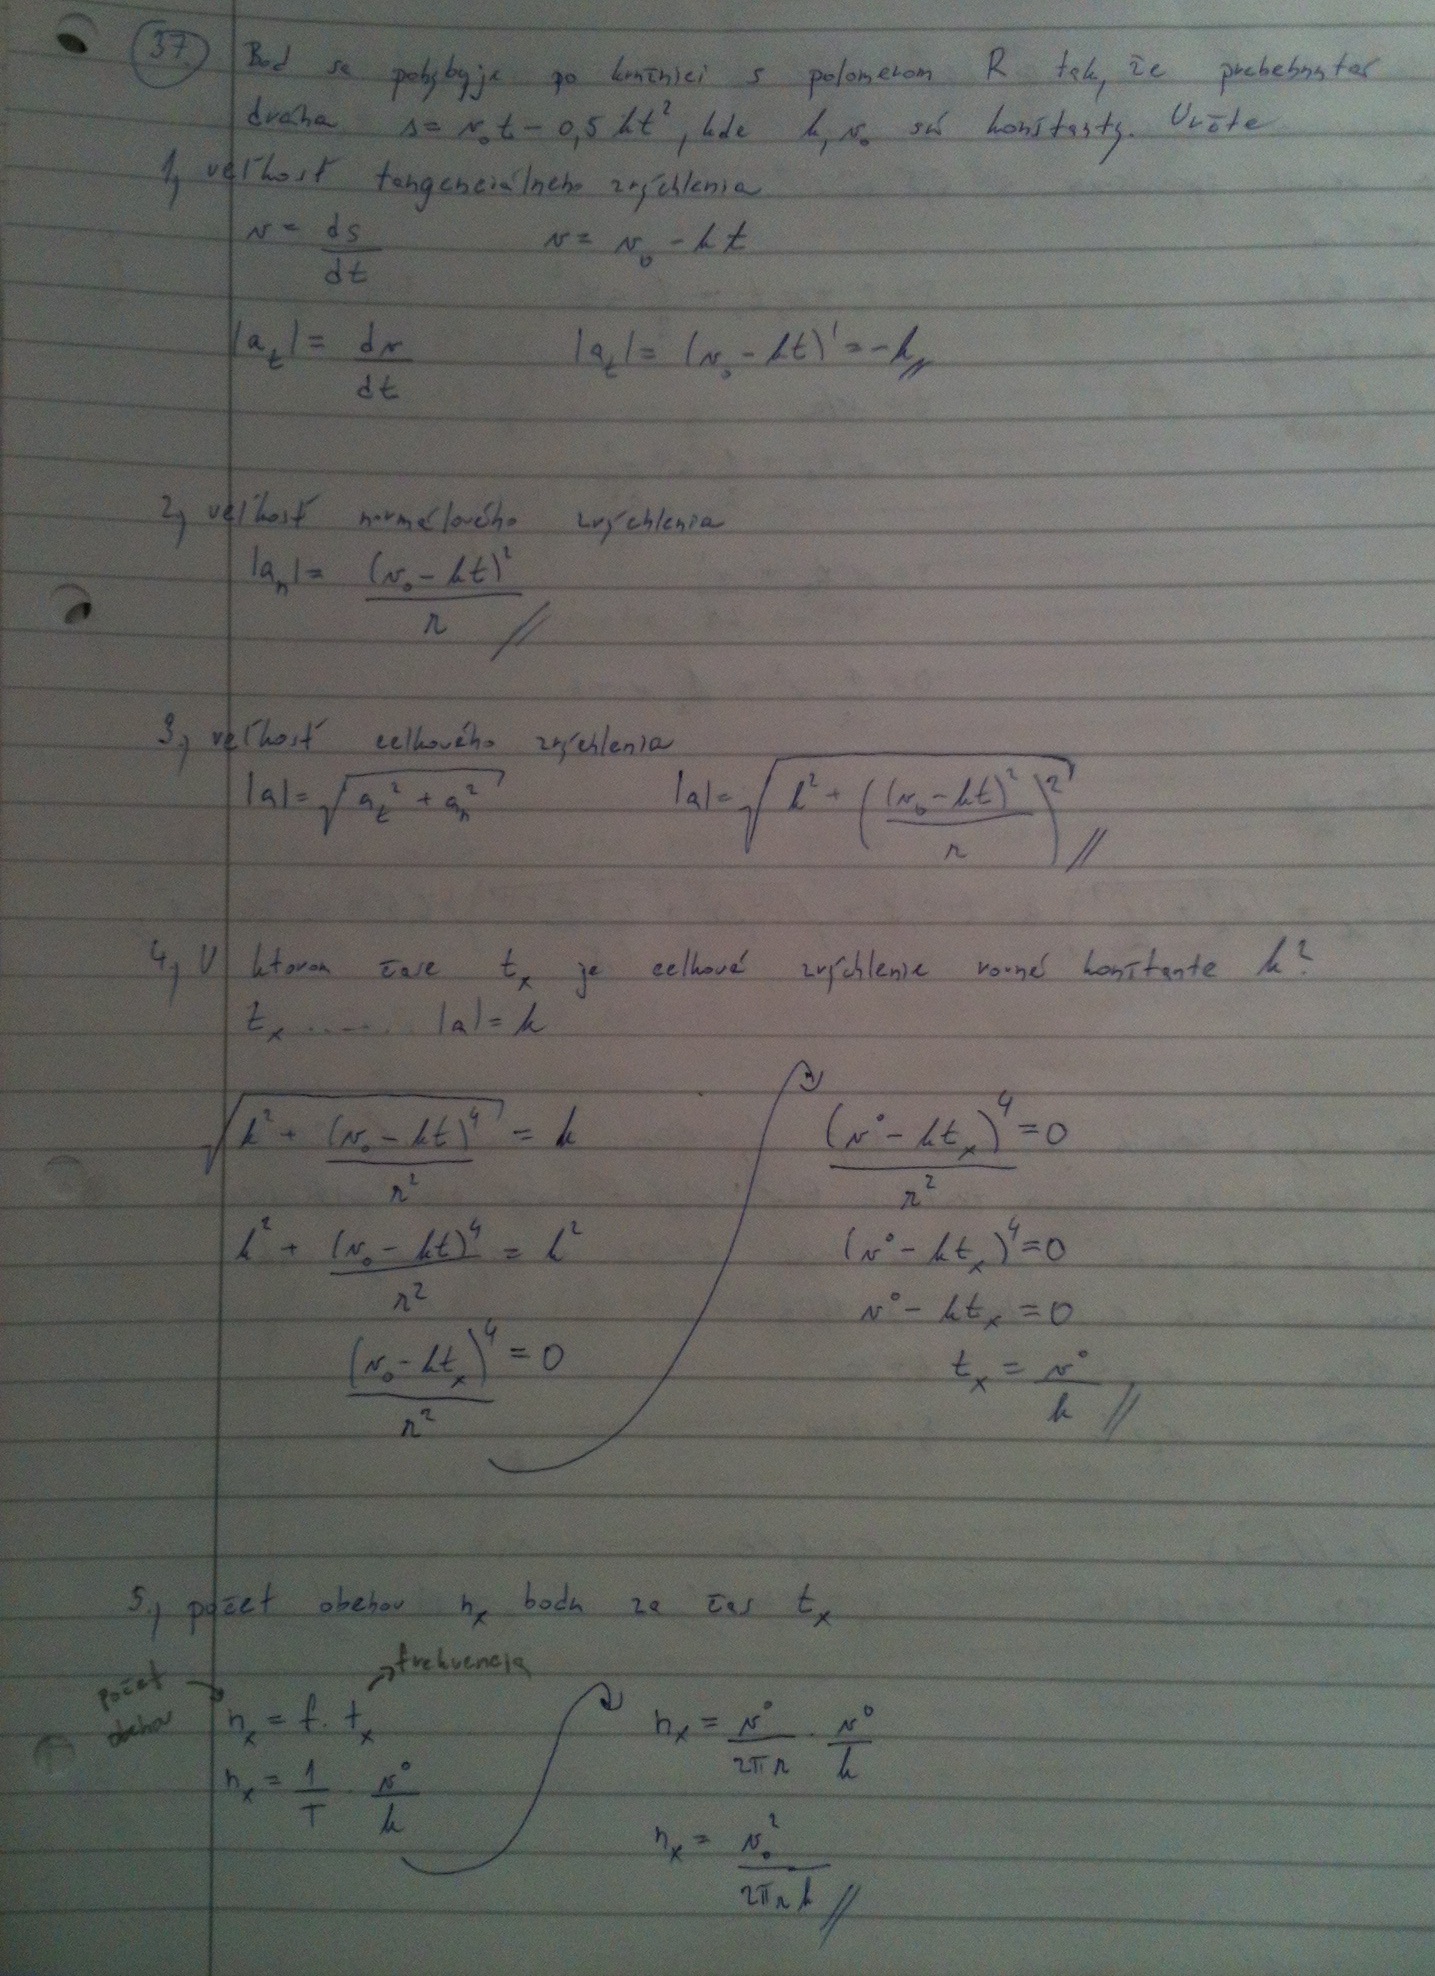 37. Bod sa pohybuje po kružnici s polomerom R tak, že prebehnutá
dráha s = v₀t - 0,5 kt², kde k, v₀ sú konštanty. Určte
1, veľkosť tangenciálneho zrýchlenia
v = ds/dt    v = v₀ - kt
|a_t| = dv/dt    |a_t| = (v₀ - kt)' = -k
2, veľkosť normálového zrýchlenia
|a_n| = (v₀ - kt)²/r
3, veľkosť celkového zrýchlenia
|a| = √(a_t² + a_n²)    |a| = √(k² + ((v₀ - kt)²/r)²)
4, V ktorom čase t_x je celkové zrýchlenie rovné konštante k?
t_x ....... |a| = k
√(k² + (v₀ - kt)⁴/r²) = k
k² + (v₀ - kt)⁴/r² = k²
(v₀ - kt_x)⁴/r² = 0
(v° - kt_x)⁴/r² = 0
(v° - kt_x)⁴ = 0
v° - kt_x = 0
t_x = v°/k
5, počet obehov n_x bodu za čas t_x
počet obehov
frekvencia
n_x = f · t_x
n_x = 1/T · v°/k
n_x = v°/2πr · v°/k
n_x = v₀²/2πrk